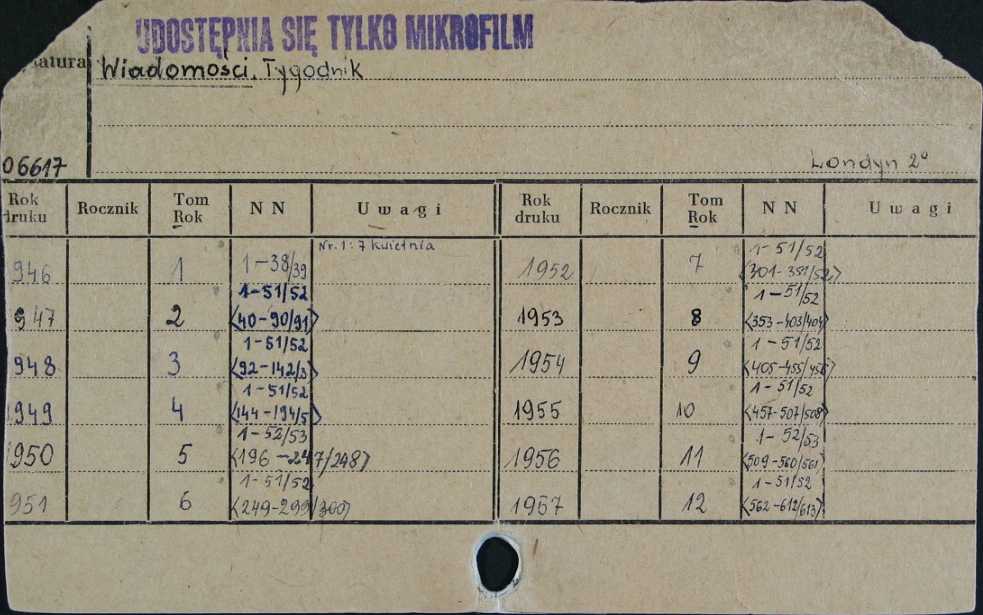 UDOSTĘPNIA SIĘ TYLKO MIKROFILM
natura Wiadomości. Tygodnik
06617 Londyn 2°
Rok druku Rocznik Tom Rok NN Uwagi Rok druku Rocznik Tom Rok NN Uwagi
946 1 1-38/39 Nr. 1: 7 kwietnia
947 2 1-51/52 <40-90/91>
948 3 1-51/52 <92-142/3>
1949 4 1-51/52 <144-194/5>
1950 5 1-52/53 <196-247/248>
951 6 1-51/52 <249-299/300>
1952 7 1-51/52 <301-351/52>
1953 8 1-51/52 <353-403/404>
1954 9 1-51/52 <405-455/456>
1955 10 1-51/52 <457-507/508>
1956 11 1-52/53 <509-560/561>
1957 12 1-51/52 <562-612/613>